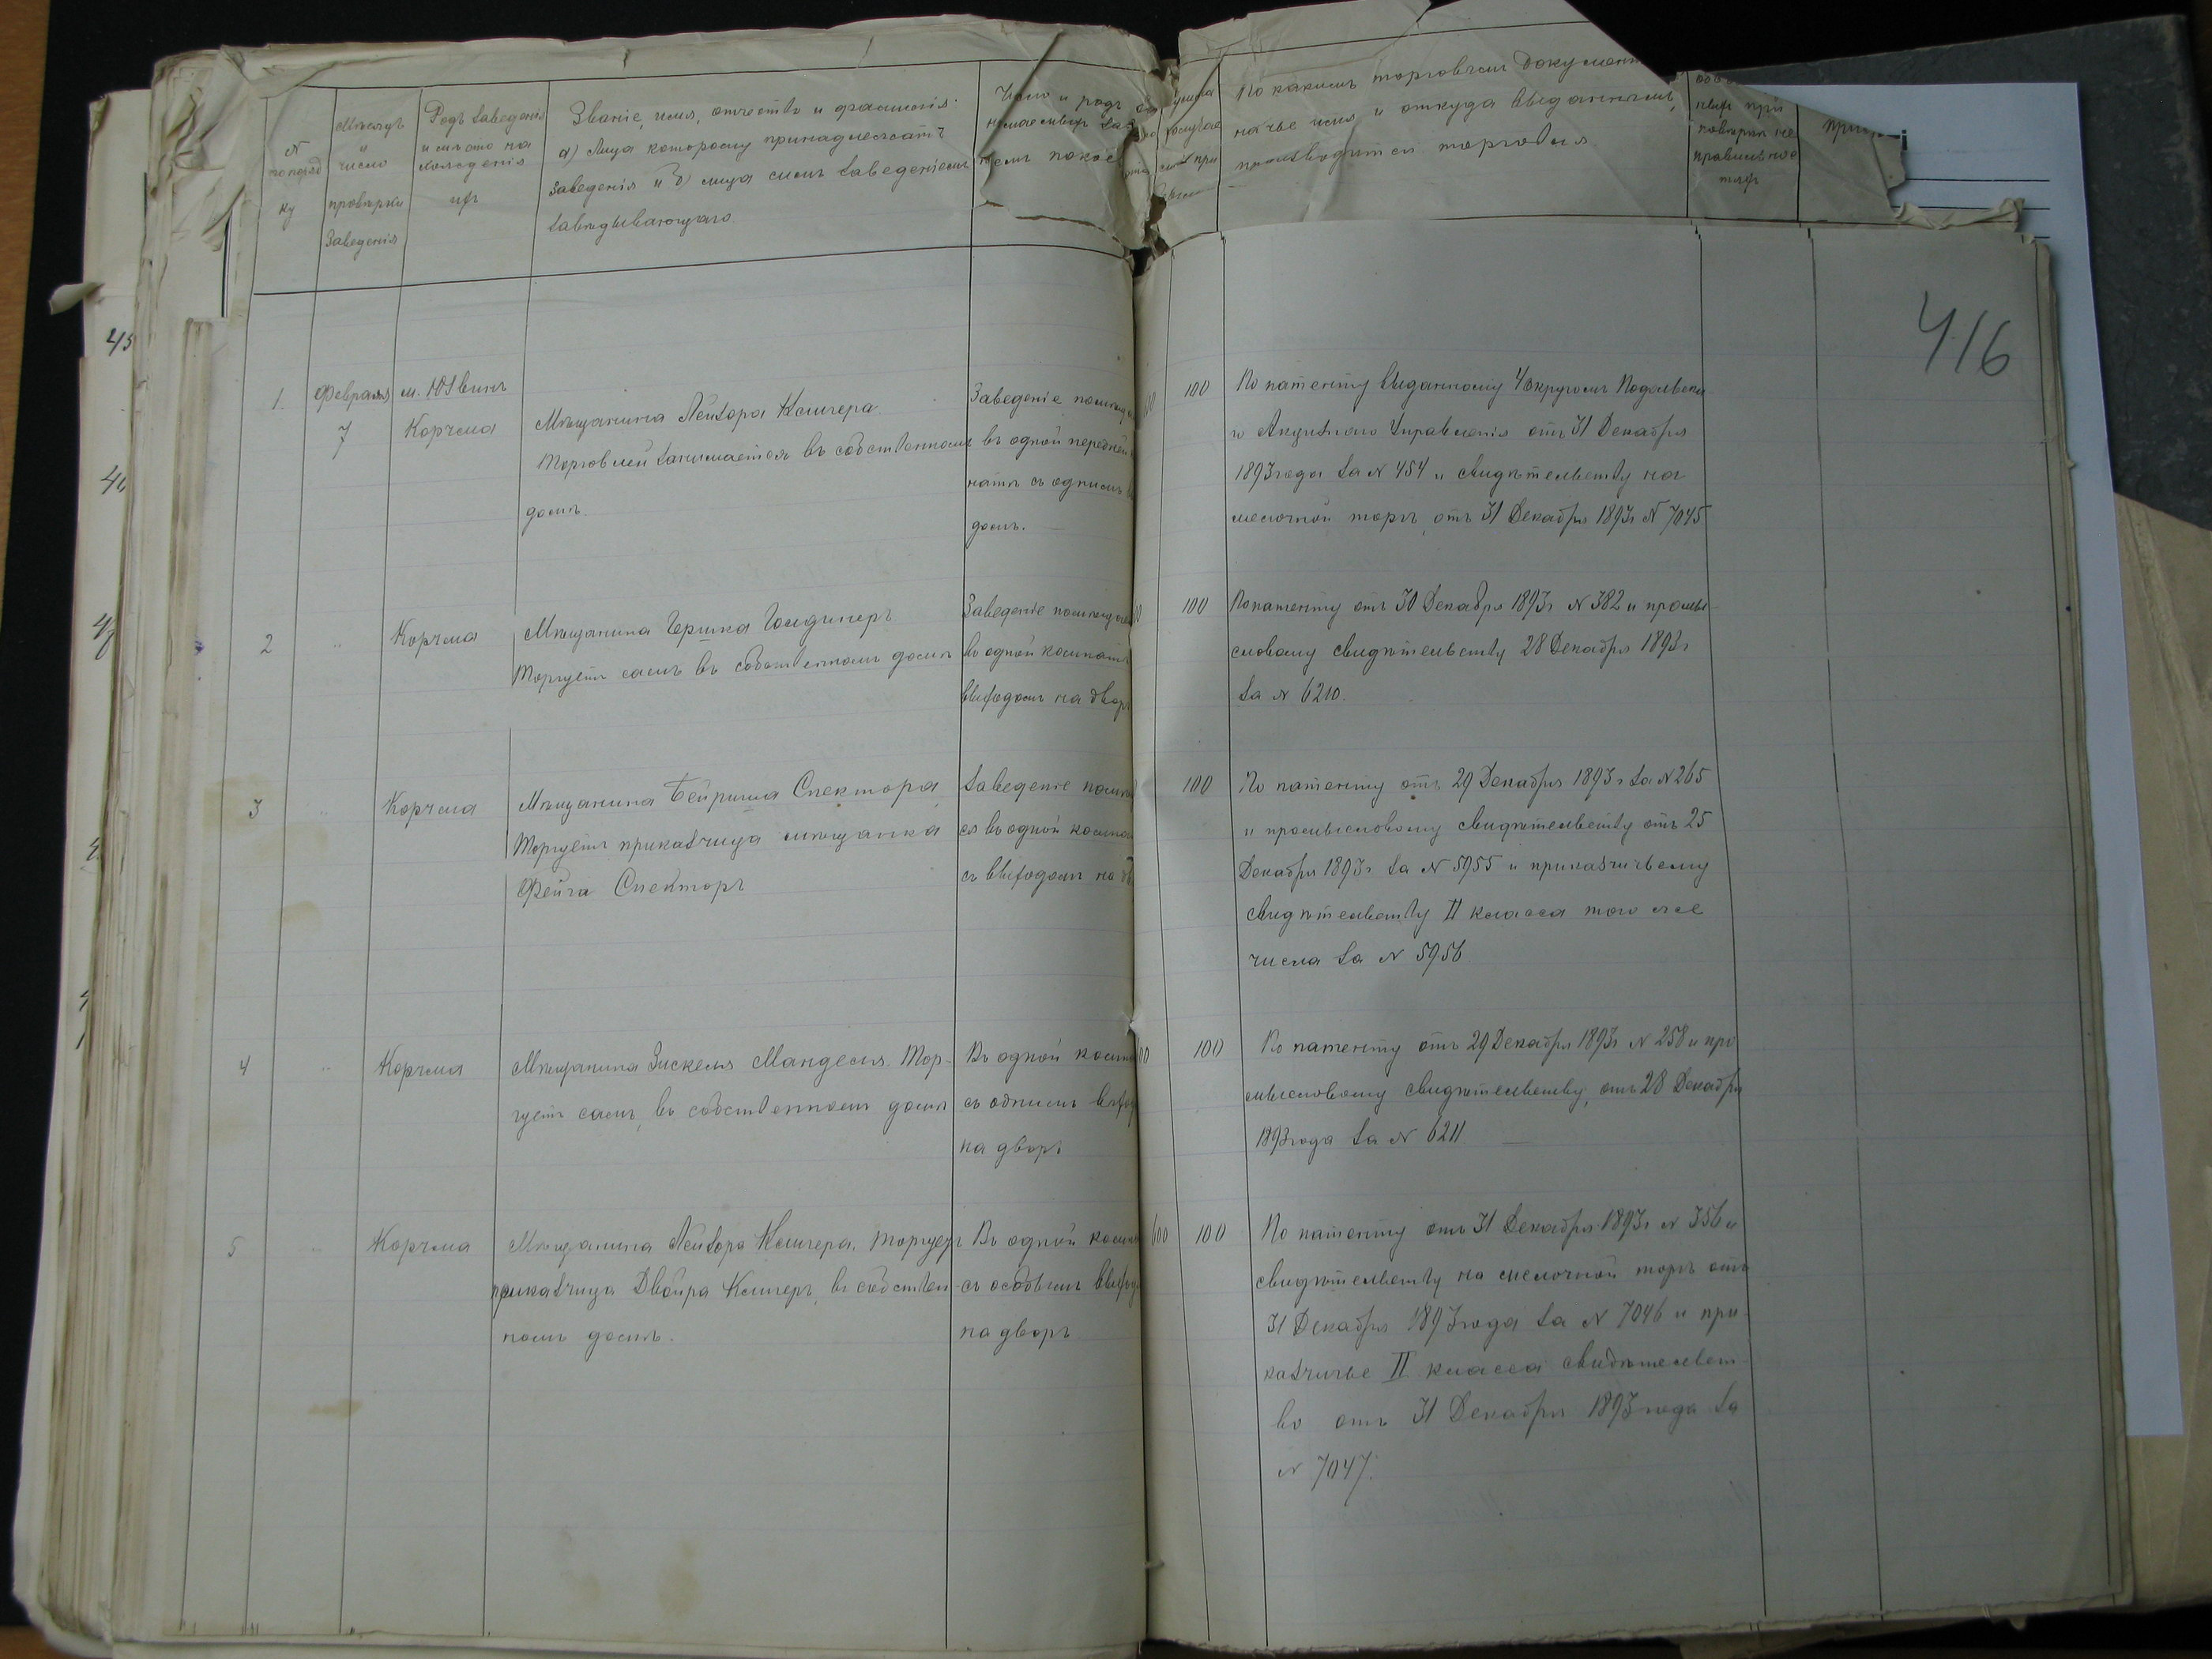 № по поряд
ку
Мѣсяцъ
и
число
провѣрки
Заведенія
Родъ заведенія
и мѣсто на
хожденія
ихъ
Званіе, имя, отчество и фамилія
а) лица которому принадлежатъ
заведенія и б) лица симъ заведеніемъ
завѣдывающаго
Число и родъ
По какимъ торговымъ докумен
на чье имя и откуда выданнымъ,
производится торговля
ныя при
повѣркѣ не
правильнос
тяхъ
416
1.
Февраля
7
м. Юзвинъ
Корчма
Мѣщанина Лейзора Клигера
Торговлей занимается въ собственномъ
домѣ.
Заведеніе помѣщ
въ одной передней
натѣ съ однимъ
домъ.
100
По патенту выданному 4 округомъ Подольска
го Акцизнаго Управленія отъ 31 Декабря
1893 года за № 454 и свидѣтельству на
мелочной торгъ, отъ 31 Декабря 1893 г № 7045
2
"
Корчма
Мѣщанина Гершка Гольдинеръ
Торгуетъ самъ въ собственномъ домѣ
Заведеніе помѣщае
въ одной комнатѣ
выходомъ на дворъ
100
По патенту отъ 30 Декабря 1893 г № 382 и промы-
словому свидѣтельству 28 Декабря 1893 г
за № 6210.
3
"
Корчма
Мѣщанина Бейриша Спектора
Торгуетъ приказчица мѣщанка
Фейга Спекторъ
Заведеніе помѣщ
ся въ одной комна
съ выходомъ на дв
100
По патенту отъ 29 Декабря 1893 г за № 265
и промысловому свидѣтельству отъ 25
Декабря 1893 г за № 5955 и приказчичьему
свидѣтельству II класса того же
числа за № 5956
4
"
Корчма
Мѣщанина Зискеля Манделя. Тор-
гуетъ самъ, въ собственномъ домѣ
Въ одной комна
съ однимъ выхо
на дворъ
100
По патенту отъ 29 Декабря 1893 г № 258 и про
мысловому свидѣтельству, отъ 28 Декабря
1893 года за № 6211
5
"
Корчма
Мѣщанина Лейзора Клигера. Торгуетъ
приказчица Двойра Клигеръ, въ собствен
номъ домѣ.
Въ одной комна
съ особымъ выхо
на дворъ
600
100
По патенту отъ 31 Декабря 1893 г № 356 и
свидѣтельству на мелочной торгъ отъ
31 Декабря 1893 года за № 7046 и при-
казчичье II класса свидѣтельст
во отъ 31 Декабря 1893 года за
№ 7047.